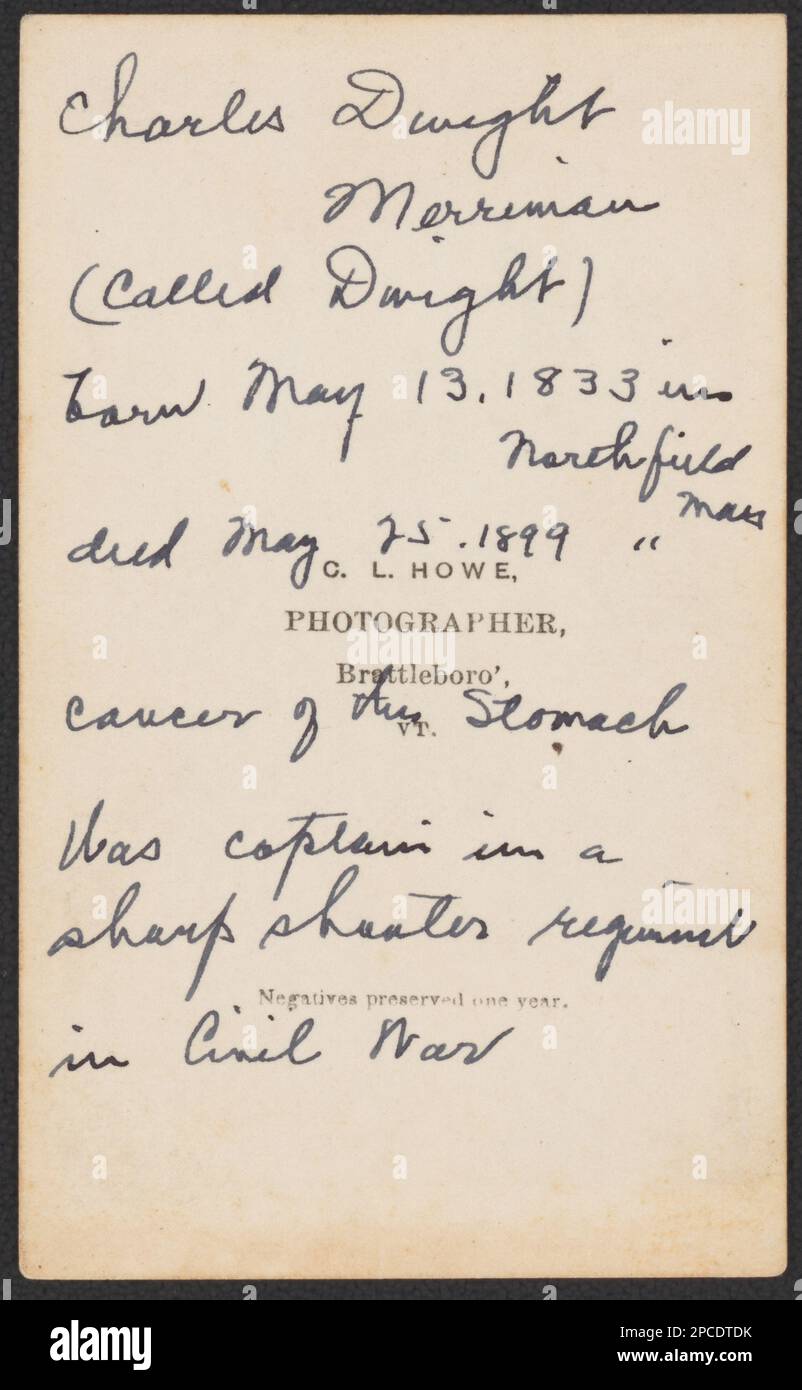 Charles Dwight
Merriman
(Called Dwight)
born May 13, 1833 in
Northfield
Mass
died May 25. 1899 "
C. L. HOWE,
PHOTOGRAPHER,
Brattleboro',
cancer of the Stomach
VT.
Was captain in a
sharp shooter regiment
Negatives preserved one year.
in Civil War
alamy
alamy
alamy
a
a
a
a
a
a
a
a
a
alamy
Image ID: 2PCDTDK
www.alamy.com